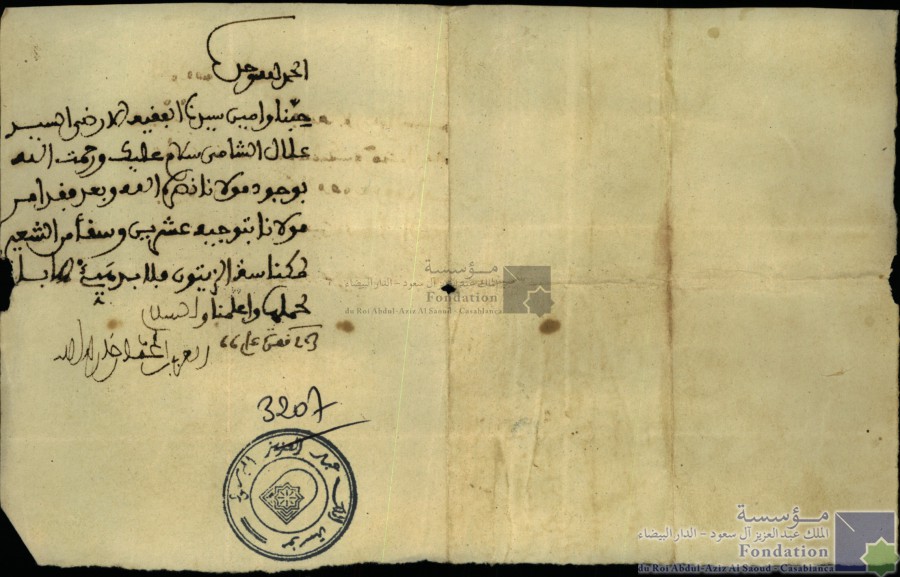 الحمد لله وحده
محبنا وامين سيدنا الفقيه الارضى السيد
علال الشامى سلام عليك ورحمت الله
بوجود مولانا نصره الله وبعد فقد امر
مولانا بتوجيه عشرين وسقا من الشعير
لمكناسة الزيتون فلا بد
لحملها واعلمنا والسلام
في صفر عام
3207
عبد العزيز
مؤسسة
الملك عبد العزيز آل سعود - الدار البيضاء
Fondation
du Roi Abdul-Aziz Al Saoud - Casablanca
مؤسسة
الملك عبد العزيز آل سعود - الدار البيضاء
Fondation
du Roi Abdul-Aziz Al Saoud - Casablanca